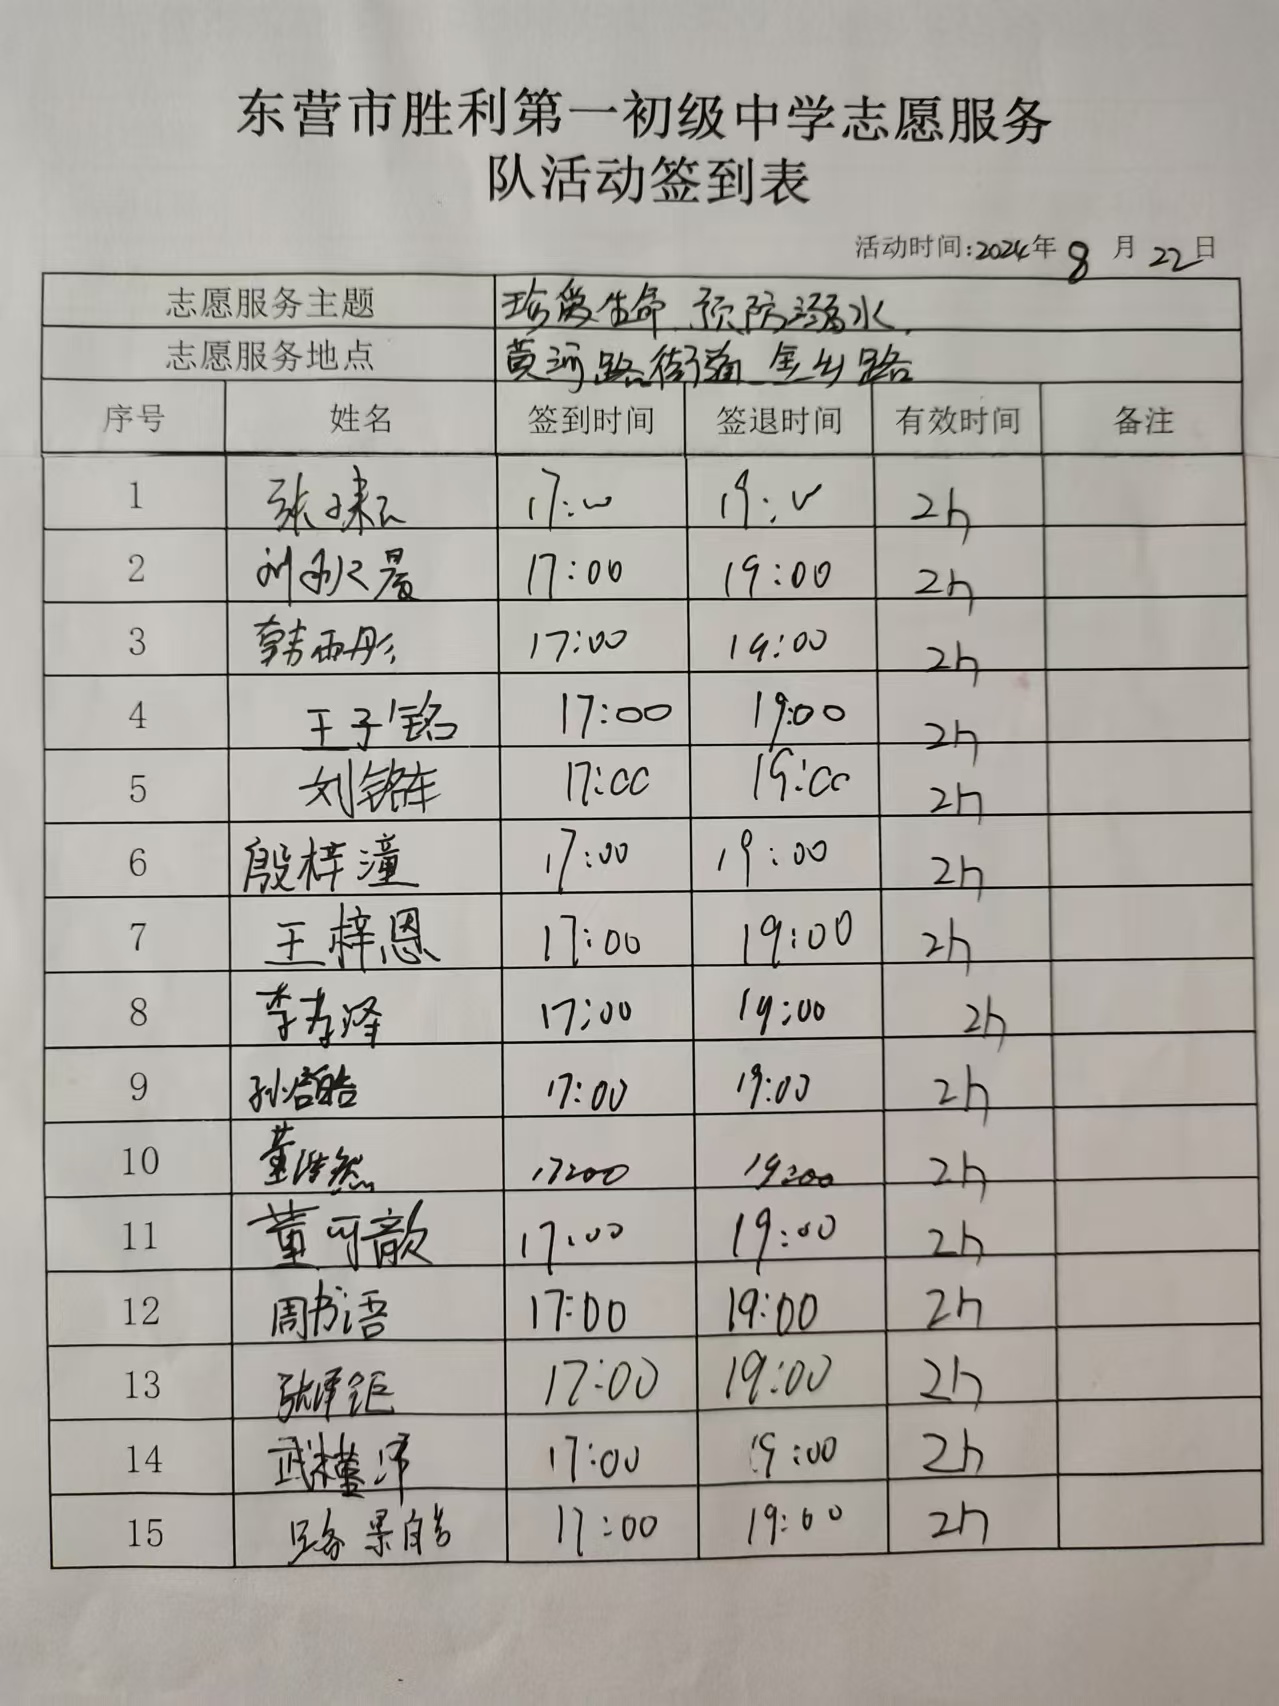 东营市胜利第一初级中学志愿服务
队活动签到表
活动时间:2024年8月22日
志愿服务主题 珍爱生命 预防溺水
志愿服务地点 黄河路街道
序号 姓名 签到时间 签退时间 有效时间 备注
1 2h
2 17:00 19:00 2h
3 韩雨彤 17:00 19:00 2h
4 王子铭 17:00 19:00 2h
5 17:00 19:00 2h
6 殷梓潼 17:00 19:00 2h
7 王梓恩 17:00 19:00 2h
8 17:00 19:00 2h
9 17:00 19:00 2h
10 董浩然 17:00 19:00 2h
11 董可歆 17:00 19:00 2h
12 周书语 17:00 19:00 2h
13 17:00 19:00 2h
14 17:00 19:00 2h
15 17:00 19:00 2h